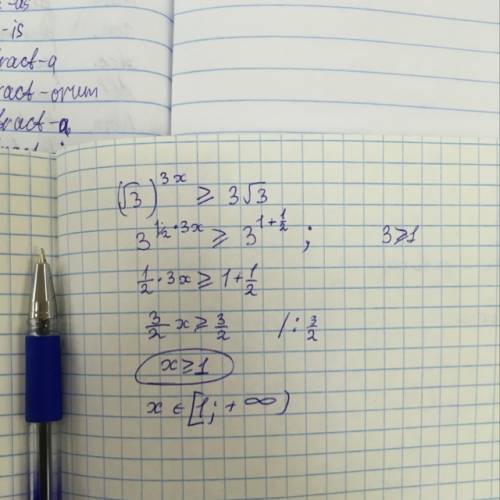 -is
ract-a
ract-orum
tract-a
(√3)^{3x} ⩾ 3√3
3^{½·3x} ⩾ 3^{1+½} ; 3⩾1
½·3x ⩾ 1+½
3/2 x ⩾ 3/2 /: 3/2
x ⩾ 1
x ∈ [1; +∞)